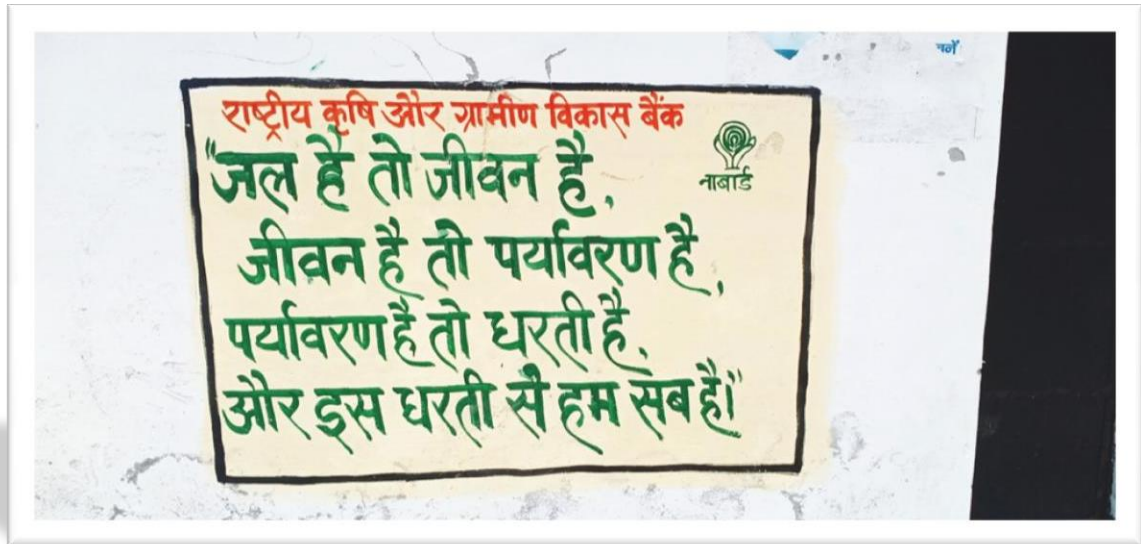 चलें
राष्ट्रीय कृषि और ग्रामीण विकास बैंक
नाबार्ड
"जल है तो जीवन है,
जीवन है तो पर्यावरण है,
पर्यावरण है तो धरती है,
और इस धरती से हम सब है।"